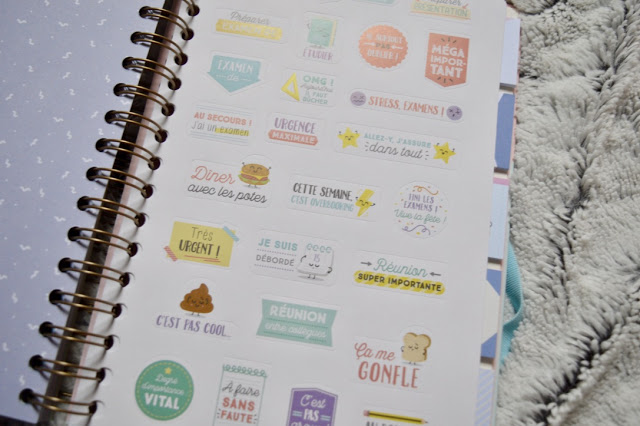 Préparer
ÉTUDIER
PRÉSENTATION
MÉGA
IMPOR-
TANT
EXAMEN
de
OMG !
AU SECOURS !
J'ai un examen
URGENCE
MAXIMALE
STRESS, EXAMENS !
ALLEZ-Y, J'ASSURE
dans tout
Dîner
avec les potes
CETTE SEMAINE,
C'EST OVERBOOKING
FINI LES
EXAMENS !
Vive la fête !
Très
URGENT !
JE SUIS
DÉBORDÉ
15
Réunion
SUPER IMPORTANTE
C'EST PAS COOL...
RÉUNION
entre collègues
Ça me
GONFLE
D'importance
VITAL
À faire
SANS
FAUTE
C'est
PAS